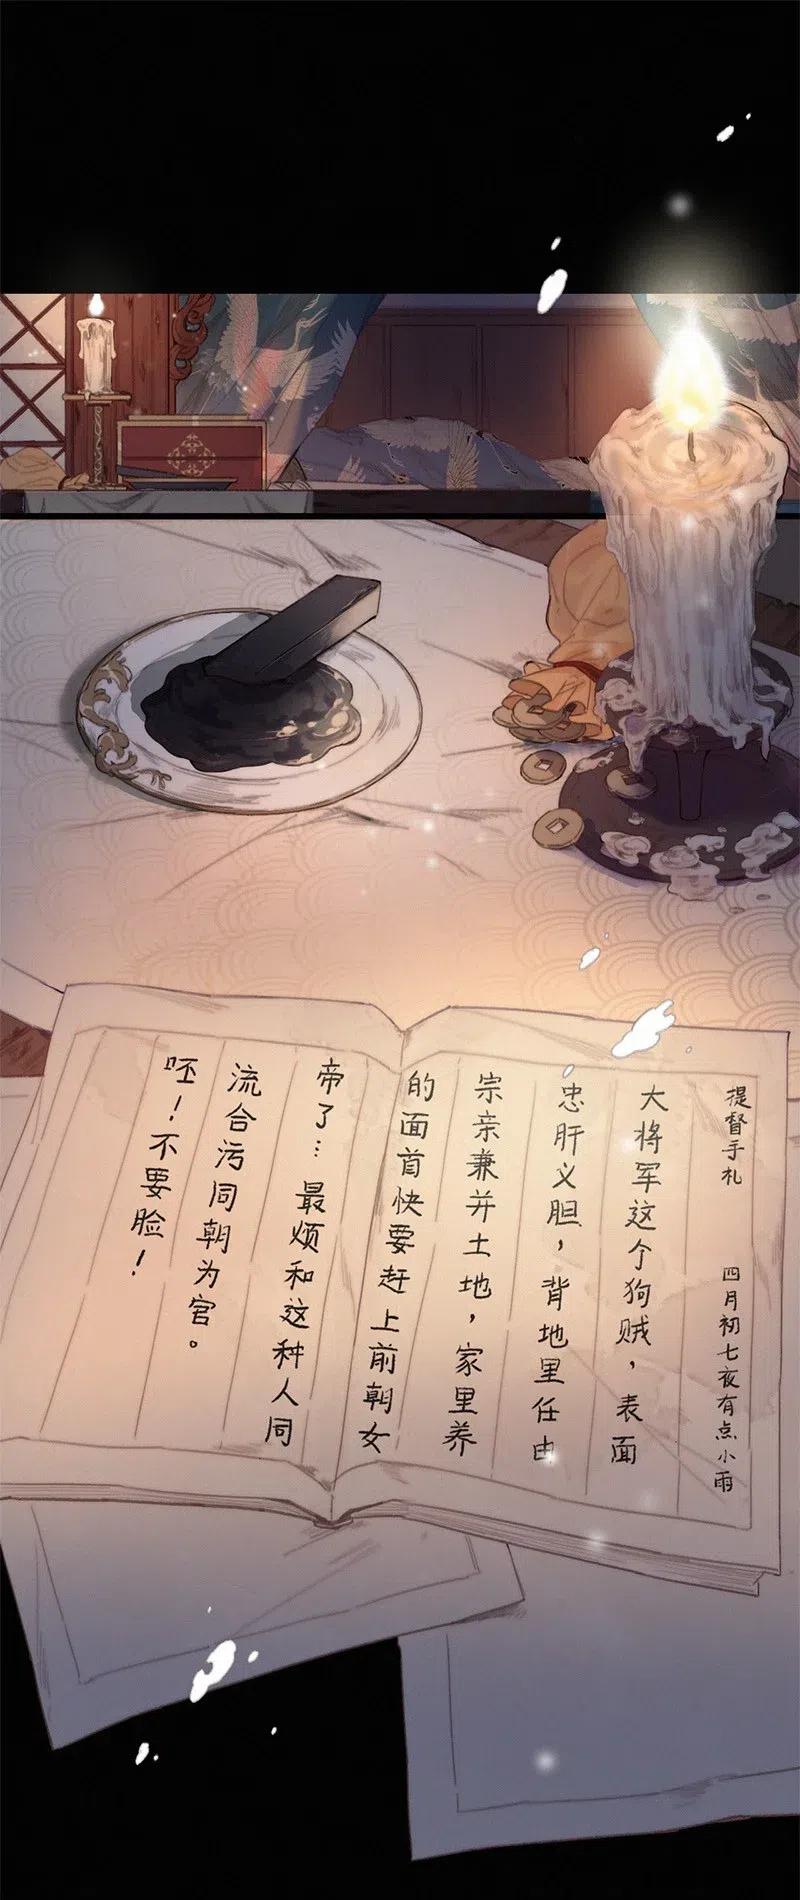 提督手札 四月初七夜有点小雨
大将军这个狗贼，表面
忠肝义胆，背地里任由
宗亲兼并土地，家里养
的面首快要赶上前朝女
帝了…最烦和这种人同
流合污同朝为官。
呸！不要脸！